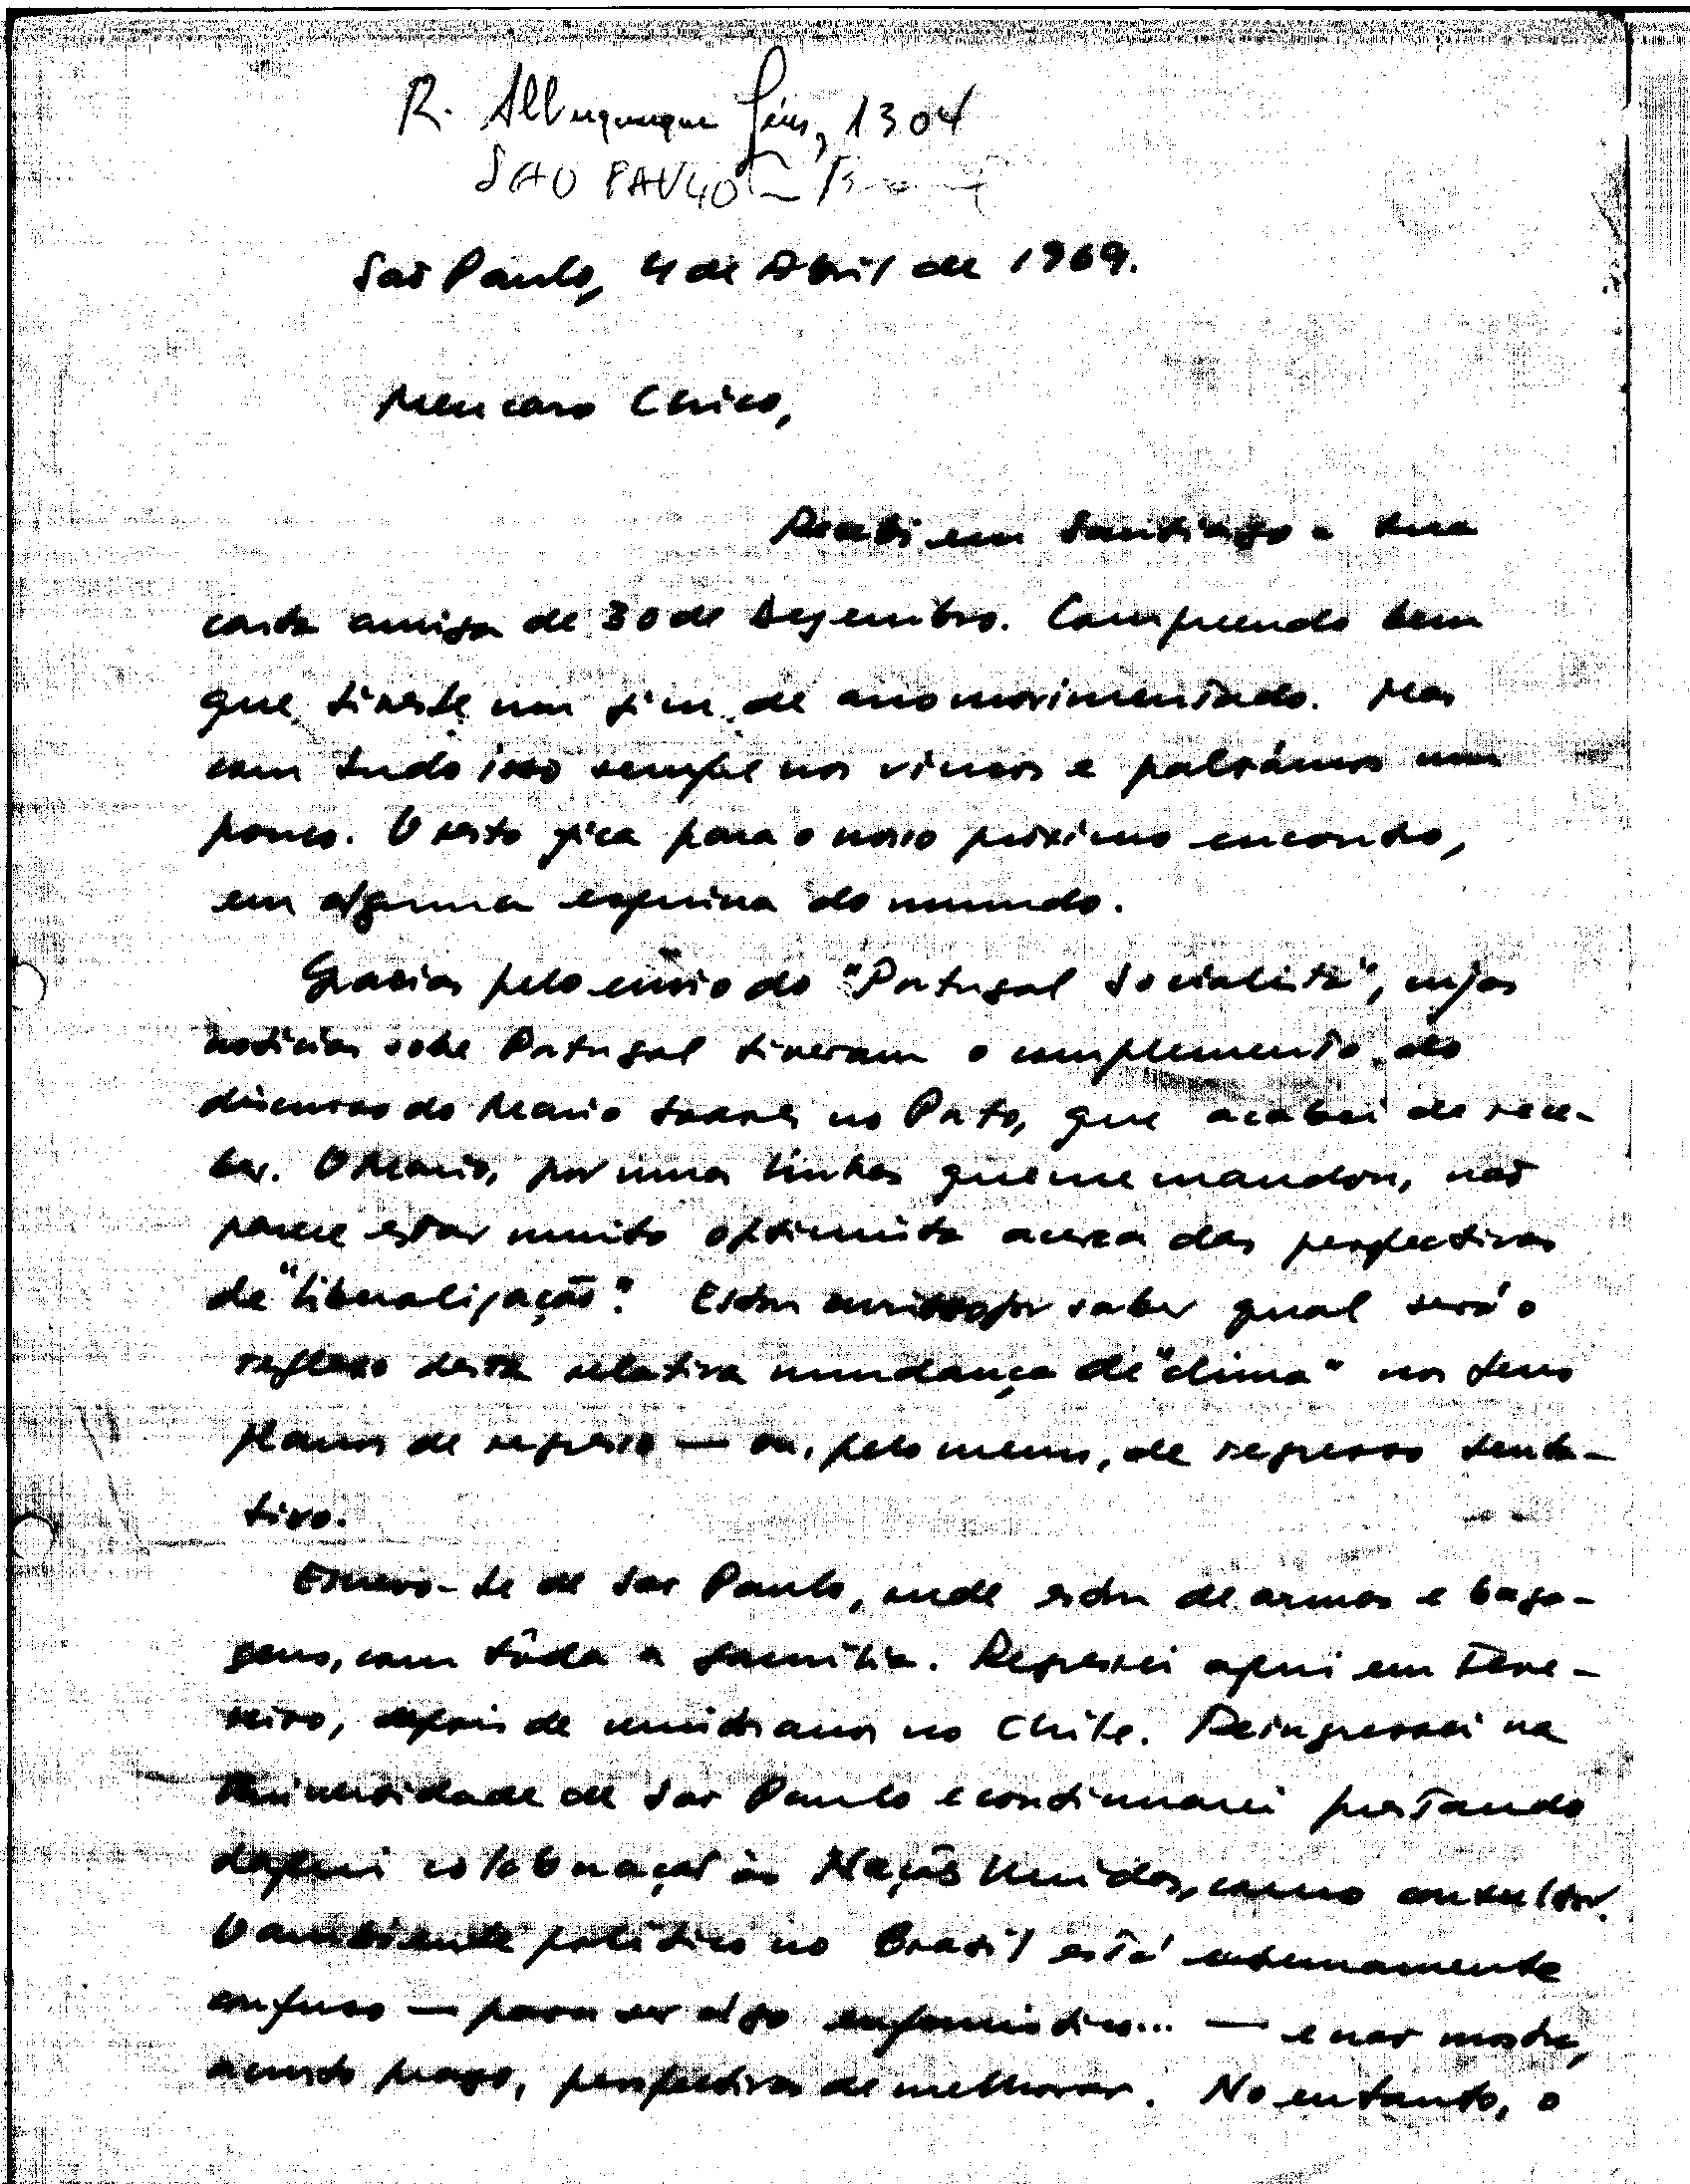 R. Albuquerque Lins, 1304
SAO PAULO —
São Paulo, 4 de Abril de 1969.
Meu caro Chico,
Recebi em Santiago a tua
carta amiga de 30 de Dezembro. Compreendo bem
que tiveste um fim de ano movimentado. Mas
com tudo isso sempre nos vimos e palrámos um
pouco. O resto fica para o nosso próximo encontro,
em alguma esquina do mundo.
Gracias pelo envio do "Portugal Socialista", cujas
notícias sobre Portugal tiveram o complemento do
discurso do Mario Soares no Porto, que acabei de rece-
ber. O Mario, por umas linhas que me mandou, não
parece estar muito optimista acerca das perspectivas
de "liberalização". Estou curioso por saber qual será o
reflexo desta relativa mundança de "clima" nos teus
planos de regresso — ou, pelo menos, de regresso tenta-
tivo.
Escrevo-te de São Paulo, onde estou de armas e baga-
gens, com tôda a família. Regressei aqui em Feve-
reiro, depois de muitos anos no Chile. Reingressei na
Universidade de São Paulo e continuarei prestando
daqui colaboração às Nações Unidas, como consultor.
O ambiente político no Brasil está extremamente
confuso — para ser algo eufemístico... — e não mostra,
a curto prazo, perspectivas de melhorar. No entanto, o